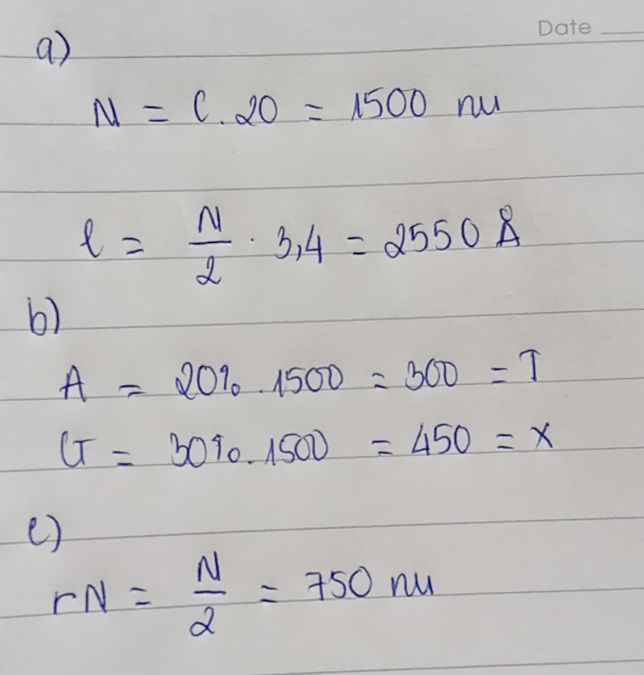 Date
a)
N = C. 20 = 1500 nu
l = N/2 . 3,4 = 2550 Å
b)
A = 20% .1500 = 300 = T
G = 30% .1500 = 450 = X
c)
rN = N/2 = 750 nu